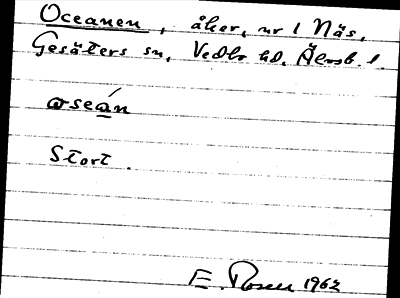 Oceanen, åker, nr 1 Näs,
Gesäters sn, Vedbo hd, Älvsb. l.
ɷseán
Stort.
E. Rosén 1962